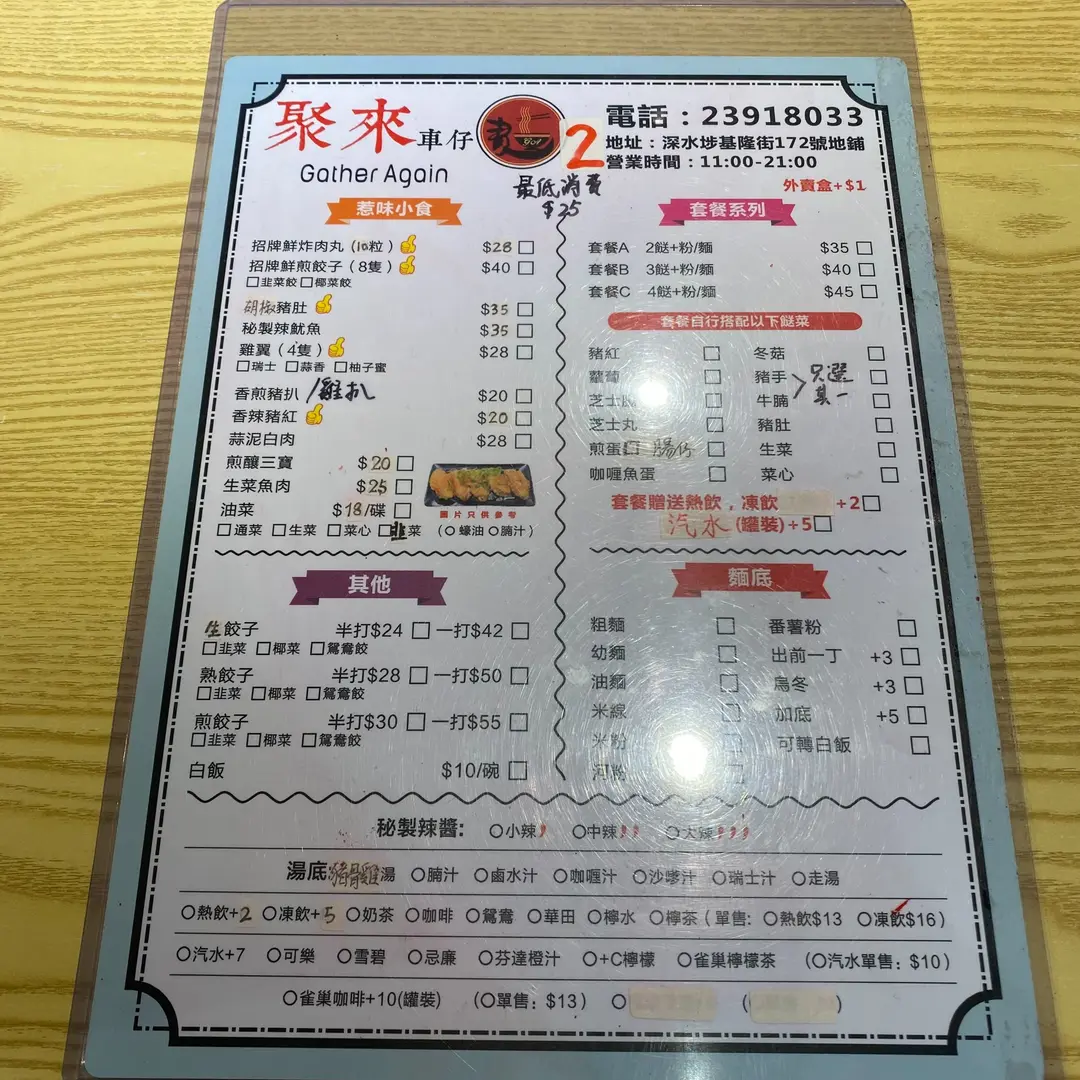 聚來車仔麵
Gather Again
2
最低消費
$25
電話：23918033
地址：深水埗基隆街172號地鋪
營業時間：11:00-21:00
外賣盒+$1
惹味小食
招牌鮮炸肉丸（10粒） $28
招牌鮮煎餃子（8隻） $40
韭菜餃 椰菜餃
胡椒豬肚 $35
秘製辣魷魚 $35
雞翼（4隻） $28
瑞士 蒜香 柚子蜜
香煎豬扒/雞扒 $20
香辣豬紅 $20
蒜泥白肉 $28
煎釀三寶 $20
生菜魚肉 $25
油菜 $18/碟
圖片只供參考
通菜 生菜 菜心 韭菜 （蠔油 腩汁）
套餐系列
套餐A 2餸+粉/麵 $35
套餐B 3餸+粉/麵 $40
套餐C 4餸+粉/麵 $45
套餐自行搭配以下餸菜
豬紅 冬菇
蘿蔔 豬手
芝士 牛腩
只選其一
芝士丸 豬肚
煎蛋 腸仔 生菜
咖喱魚蛋 菜心
套餐贈送熱飲，凍飲 +2
汽水 (罐裝)+5
其他
生餃子 半打$24 一打$42
韭菜 椰菜 鴛鴦餃
熟餃子 半打$28 一打$50
韭菜 椰菜 鴛鴦餃
煎餃子 半打$30 一打$55
韭菜 椰菜 鴛鴦餃
白飯 $10/碗
麵底
粗麵 番薯粉
幼麵 出前一丁 +3
油麵 烏冬 +3
米線 加底 +5
米粉 可轉白飯
河粉
秘製辣醬: 小辣 中辣 大辣
湯底 豬骨雞湯 腩汁 鹵水汁 咖喱汁 沙嗲汁 瑞士汁 走湯
熱飲+2 凍飲+5 奶茶 咖啡 鴛鴦 華田 檸水 檸茶（單售: 熱飲$13 凍飲$16）
汽水+7 可樂 雪碧 忌廉 芬達橙汁 +C檸檬 雀巢檸檬茶 （汽水單售: $10）
雀巢咖啡+10(罐裝) （單售: $13）